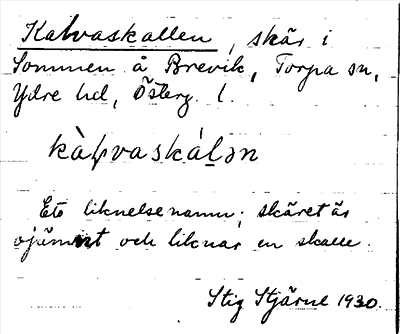 Kalvaskallen, skär i
Sommen å Brevik, Torpa sn,
Ydre hd, Österg. l.
kàḷvaskáḷən
Ett liknelsenamn; skäret är
ojämnt och liknar en skalle.
Stig Stjärne 1930.